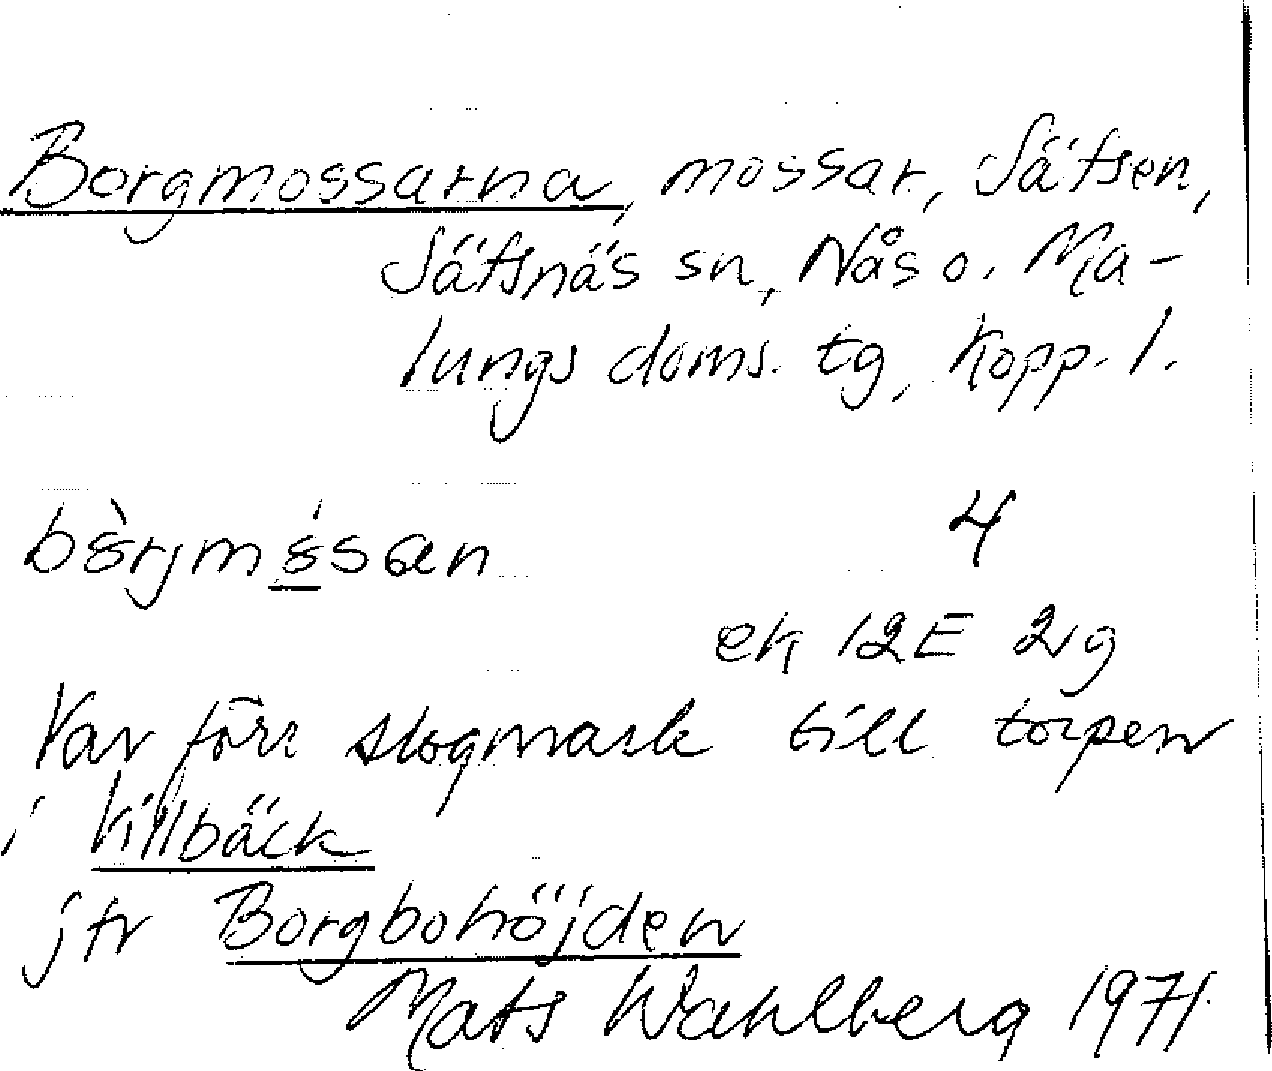 Borgmossarna, mossar, Sätsen,
Sätsnäs sn, Nås o. Ma-
lungs doms. tg, Kopp. l.
bòrjmósan 4
ek 12E 2g
Var förr slogmark till torpen
i Killbäck
jfr Borgbohöjden
Mats Wahlberg 1971.